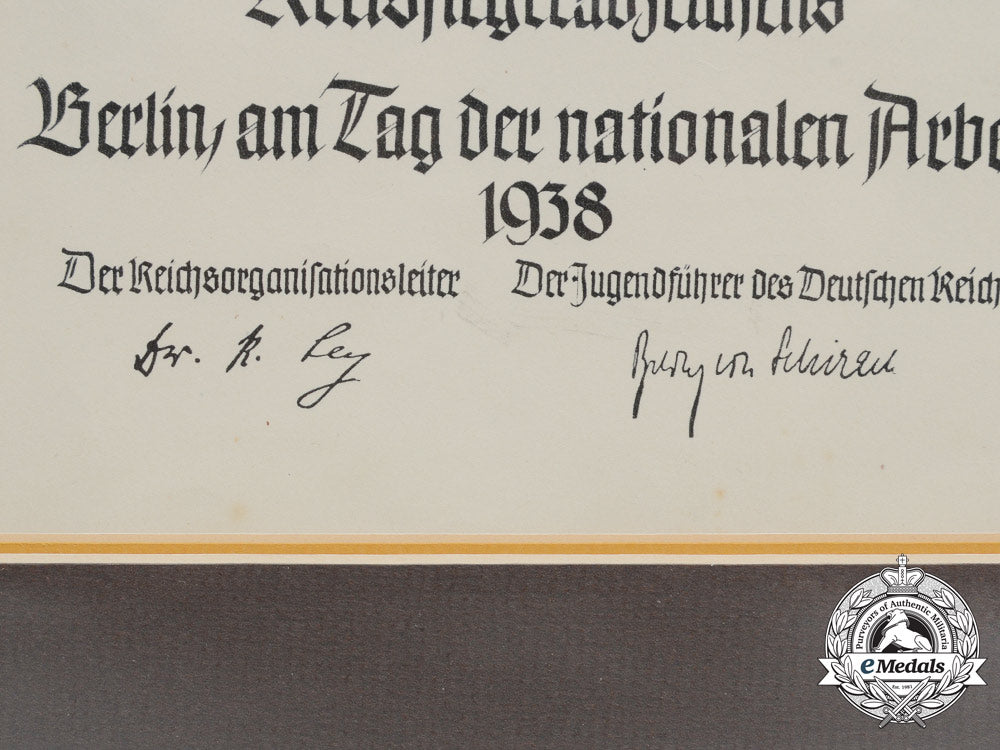 Reichssiegerabzeichens
Berlin, am Tag der nationalen Arbe
1938
Der Reichsorganisationsleiter Der Jugendführer des Deutschen Reich
Dr. R. Ley Baldur von Schirach
Purveyors of Authentic Militaria
eMedals
Est. 1997